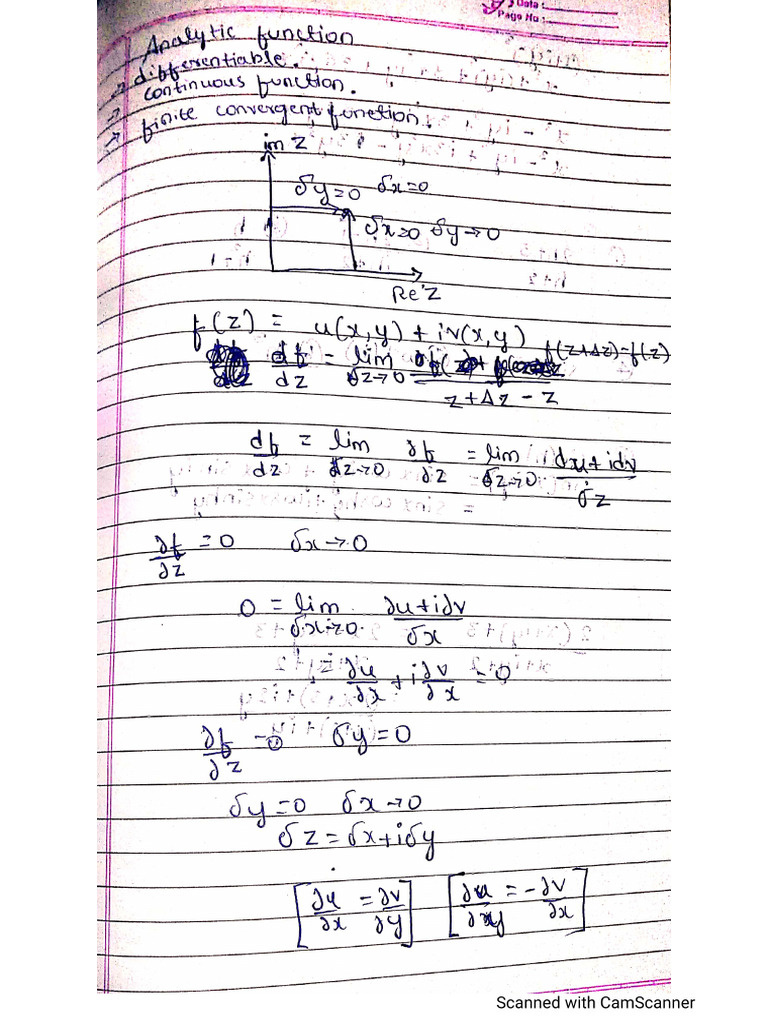 Data :
Page No :
Analytic function
→ differentiable.
→ continuous function.
→ finite convergent function.
im z
δy=0 δx=0
δx=0 δy→0
Re z
f(z) = u(x,y) + iv(x,y)
df/dz = lim δz→0 f(z+Δz)-f(z) / z+Δz-z
df/dz = lim δz→0 ∂f/δz = lim δz→0 du+idv/δz
∂f/∂z = 0 δx→0
0 = lim δx→0 ∂u+i∂v/δx
= ∂u/∂x + i∂v/∂x = 0
∂f/∂z = 0 δy=0
δy=0 δx→0
δz = δx+iδy
[∂u/∂x = ∂v/∂y] [∂u/∂y = -∂v/∂x]
Scanned with CamScanner